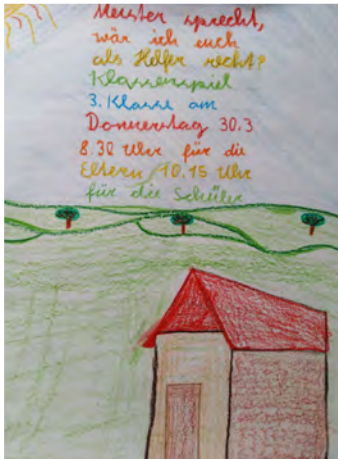 Meister sprecht,
wär ich euch
als Helfer recht?
Klassenspiel
3. Klasse am
Donnerstag 30.3
8.30 Uhr für die
Eltern / 10.15 Uhr
für die Schüler